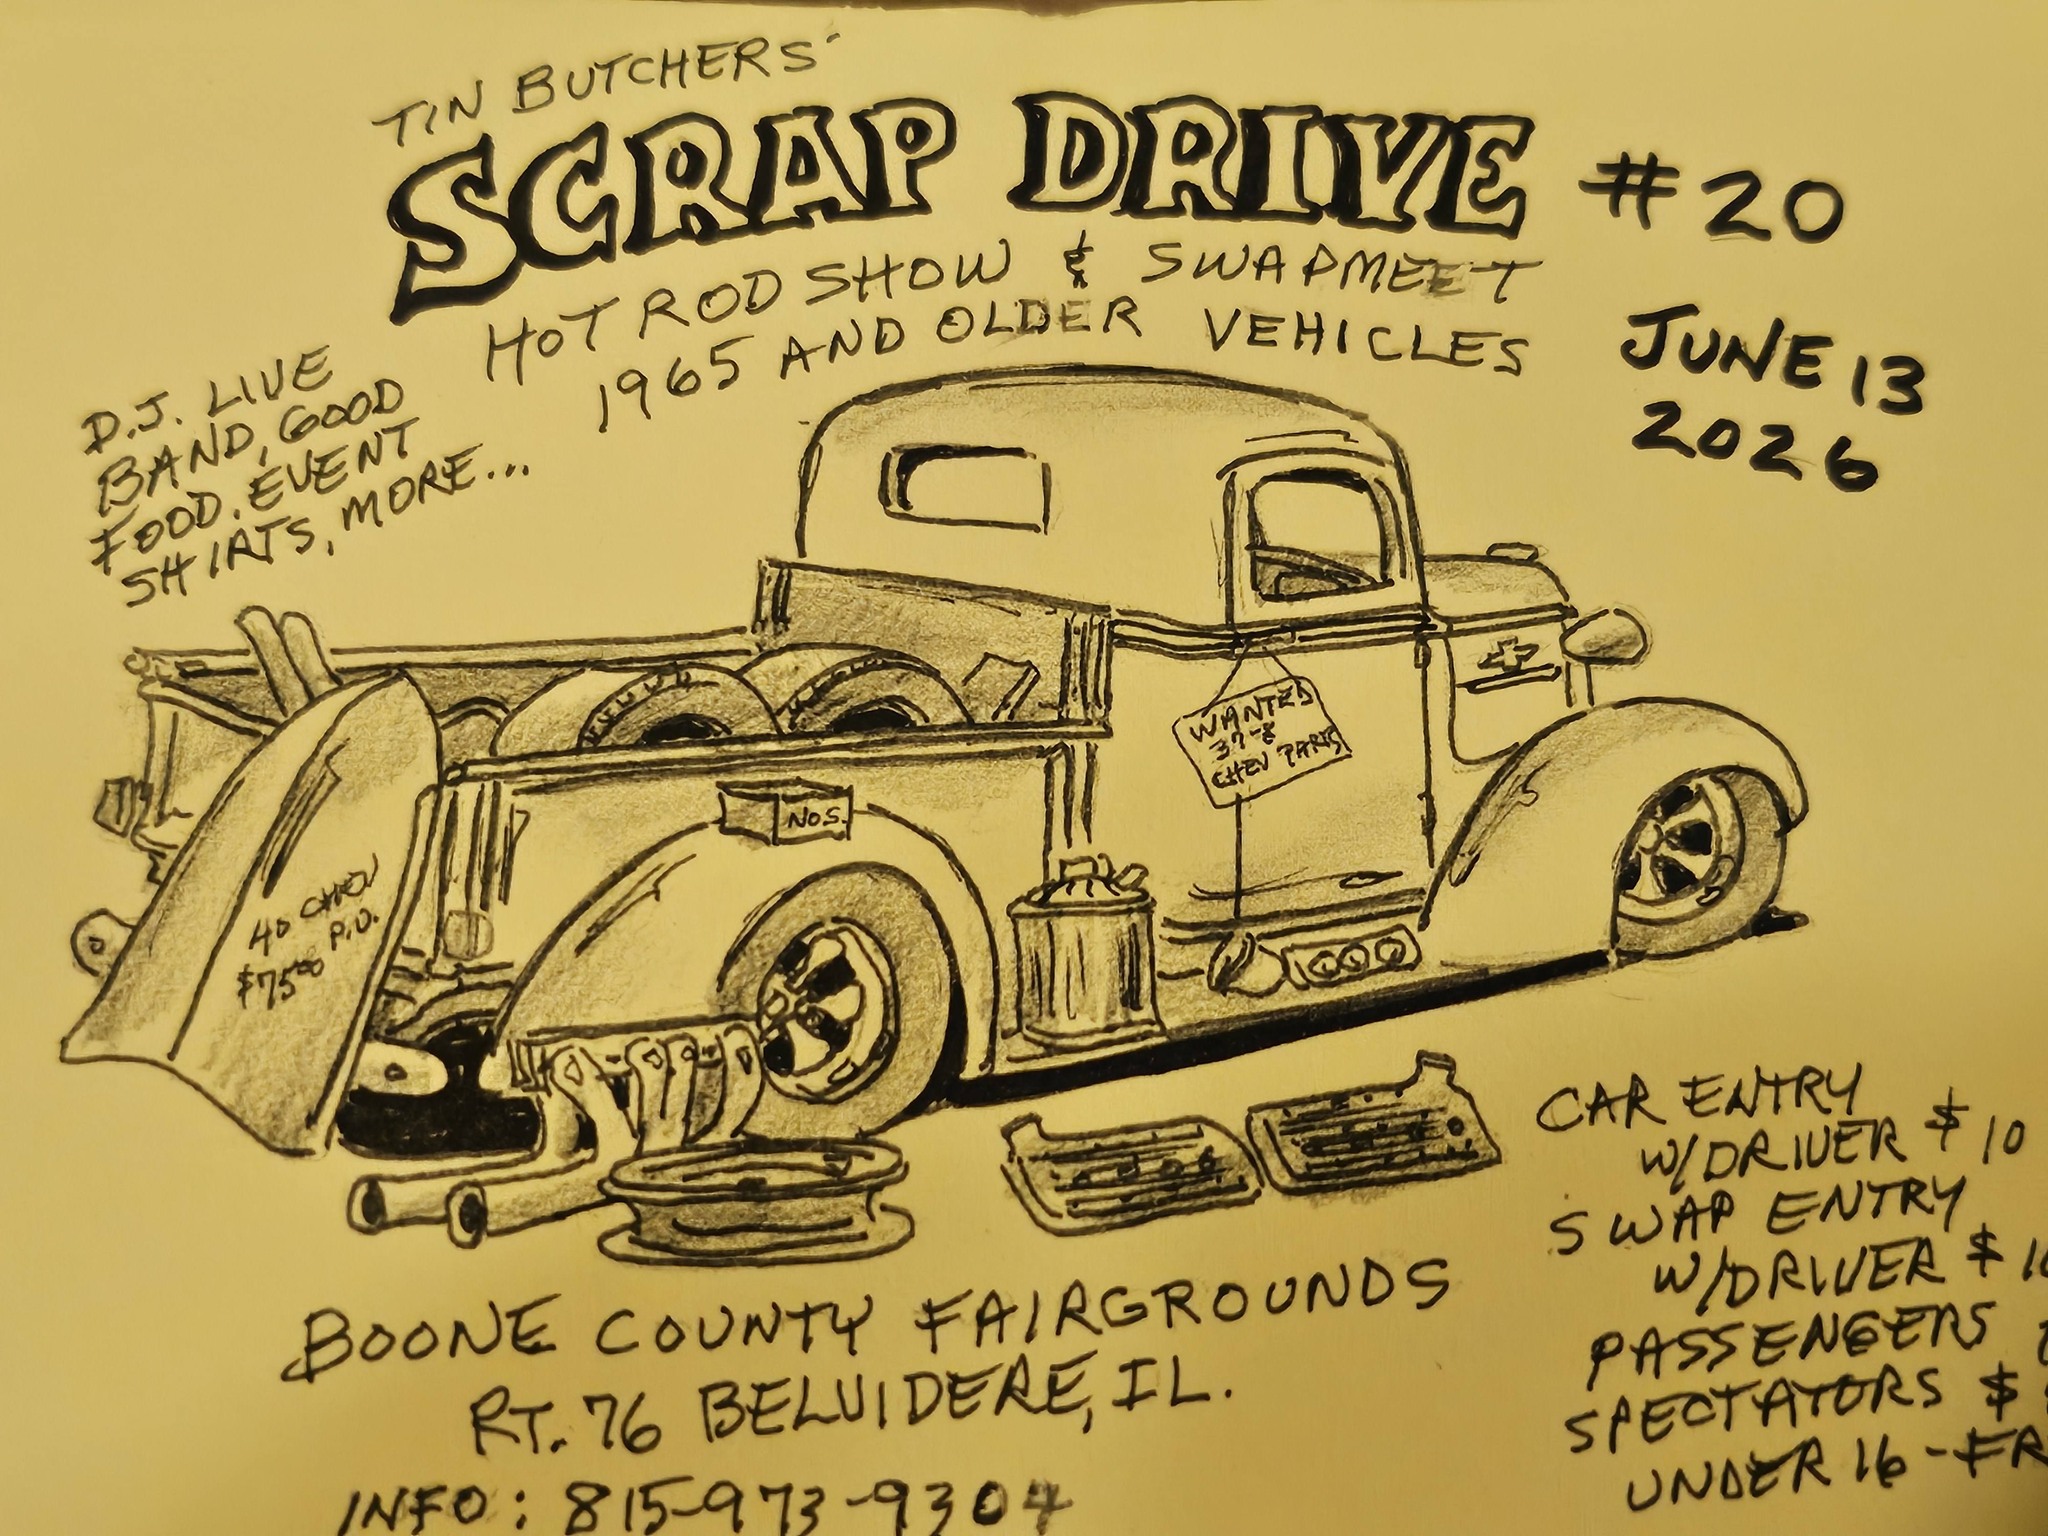 TIN BUTCHERS'
SCRAP DRIVE #20
HOT ROD SHOW & SWAPMEET
1965 AND OLDER VEHICLES
JUNE 13
2026
D.J. LIVE
BAND, GOOD
FOOD. EVENT
SHIRTS, MORE...
WANTED
37-8
CHEV PARTS
N.O.S.
40 CHEV
$75⁰⁰ P.U.
CAR ENTRY
W/DRIVER $10
SWAP ENTRY
W/DRIVER $
PASSENGERS
SPECTATORS $
UNDER 16 - FR
BOONE COUNTY FAIRGROUNDS
RT. 76 BELVIDERE, IL.
INFO: 815-973-9304